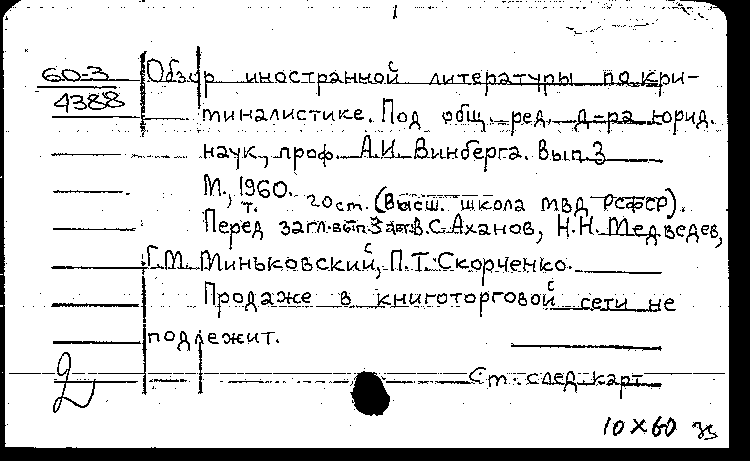 1
60-3
4388
Обзор иностранной литературы по кри-
миналистике. Под общ. ред. д-ра юрид.
наук, проф. А.И. Винберга. Вып. 3
М., 1960.
т. 20 см. (Высш. школа МВД РСФСР).
Перед загл. вып. 3 авт. В.С. Аханов, Н.Н. Медведев,
Г.М. Миньковский, П.Т. Скорченко.
Продаже в книготорговой сети не
подлежит.
См. след. карт
2
10 X 60